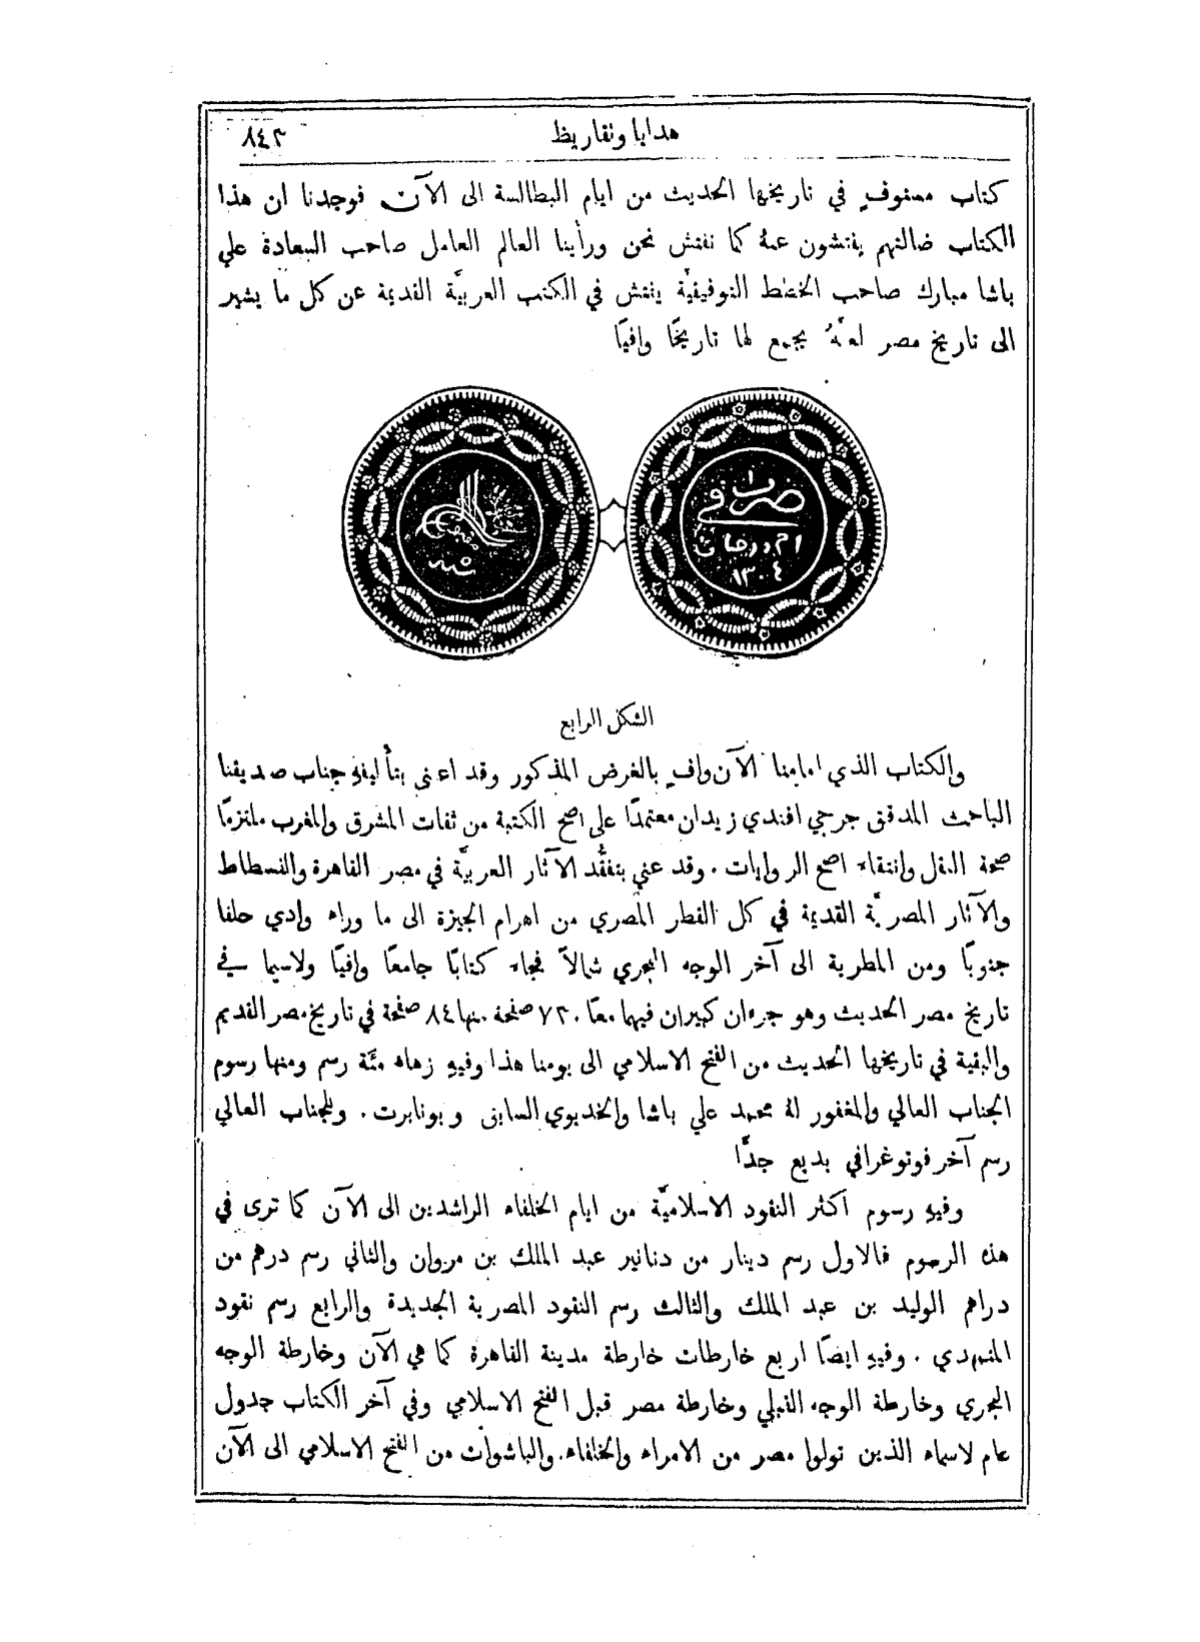 هدايا ونقاريظ
٨٤٣
كتاب مستوفٍ في تاريخها الحديث من ايام البطالسة الى الآن فوجدنا ان هذا
الكتاب ضالتهم يفتشون عنهُ كما نفتش نحن ورأينا العالم العامل صاحب السعادة علي
باشا مبارك صاحب الخطط التوفيقيَّة يفتش في الكتب العربيَّة القديمة عن كل ما يشير
الى تاريخ مصر لعلَّهُ يجمع لها تاريخًا وافيًا
ضرب في
ام درمان
١٣٠٤
الشكل الرابع
والكتاب الذي امامنا الآن وافٍ بالغرض المذكور وقد اعنى بتأليفهِ جناب صديقنا
الباحث المدقق جرجي افندي زيدان معتمدًا على اصح الكتبة من ثقات المشرق والمغرب ملتزمًا
صحة النقل وانتقاء اصح الروايات . وقد عني بتفقُّد الآثار العربيَّة في مصر القاهرة والفسطاط
والآثار المصريَّة القديمة في كل القطر المصري من اهرام الجيزة الى ما وراء وادي حلفا
جنوبًا ومن المطرية الى آخر الوجه البحري شمالاً فجاء كتابًا جامعًا وافيًا ولاسيما في
تاريخ مصر الحديث وهو جزءان كبيران فيهما معًا ٧٢٠ صفحة منها ٨٤ صفحة في تاريخ مصر القديم
والبقية في تاريخها الحديث من الفتح الاسلامي الى يومنا هذا وفيهِ زهاء مئَة رسم ومنها رسوم
الجناب العالي والمغفور لهُ محمد علي باشا والخديوي السابق وبونابرت . وللجناب العالي
رسم آخر فوتوغرافي بديع جدًّا
وفيهِ رسوم اكثر النقود الاسلاميَّة من ايام الخلفاء الراشدين الى الآن كما ترى في
هذه الرسوم فالاول رسم دينار من دنانير عبد الملك بن مروان والثاني رسم درهم من
دراهم الوليد بن عبد الملك والثالث رسم النقود المصرية الجديدة والرابع رسم نقود
المتمهدي . وفيهِ ايضًا اربع خارطات خارطة مدينة القاهرة كما هي الآن وخارطة الوجه
البحري وخارطة الوجه القبلي وخارطة مصر قبل الفتح الاسلامي وفي آخر الكتاب جدول
عام لاسماء الذين تولوا مصر من الامراء والخلفاء والباشوات من الفتح الاسلامي الى الآن